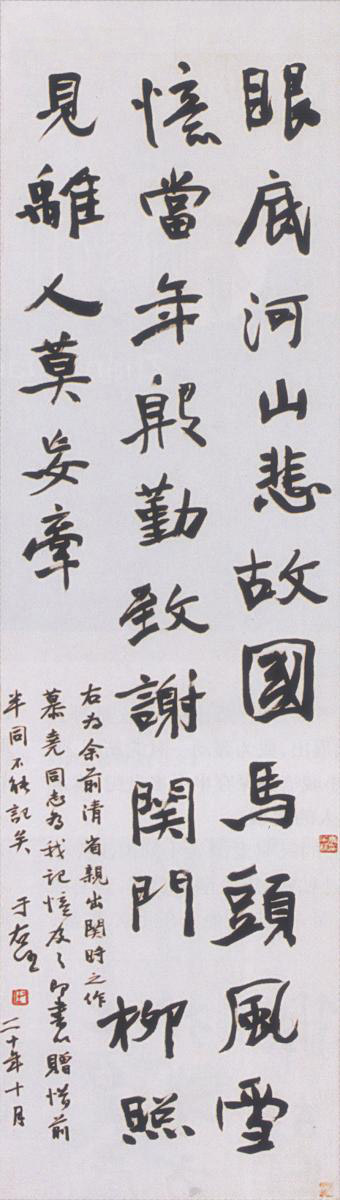 眼底河山悲故國馬頭風雪
憶當年殷勤致謝関門柳照
見離人莫妄牽
右為余前清省親出関時之作
慕堯同志為我記憶及之即書以贈惜前
半同不能記矣 于右任 二十年十月